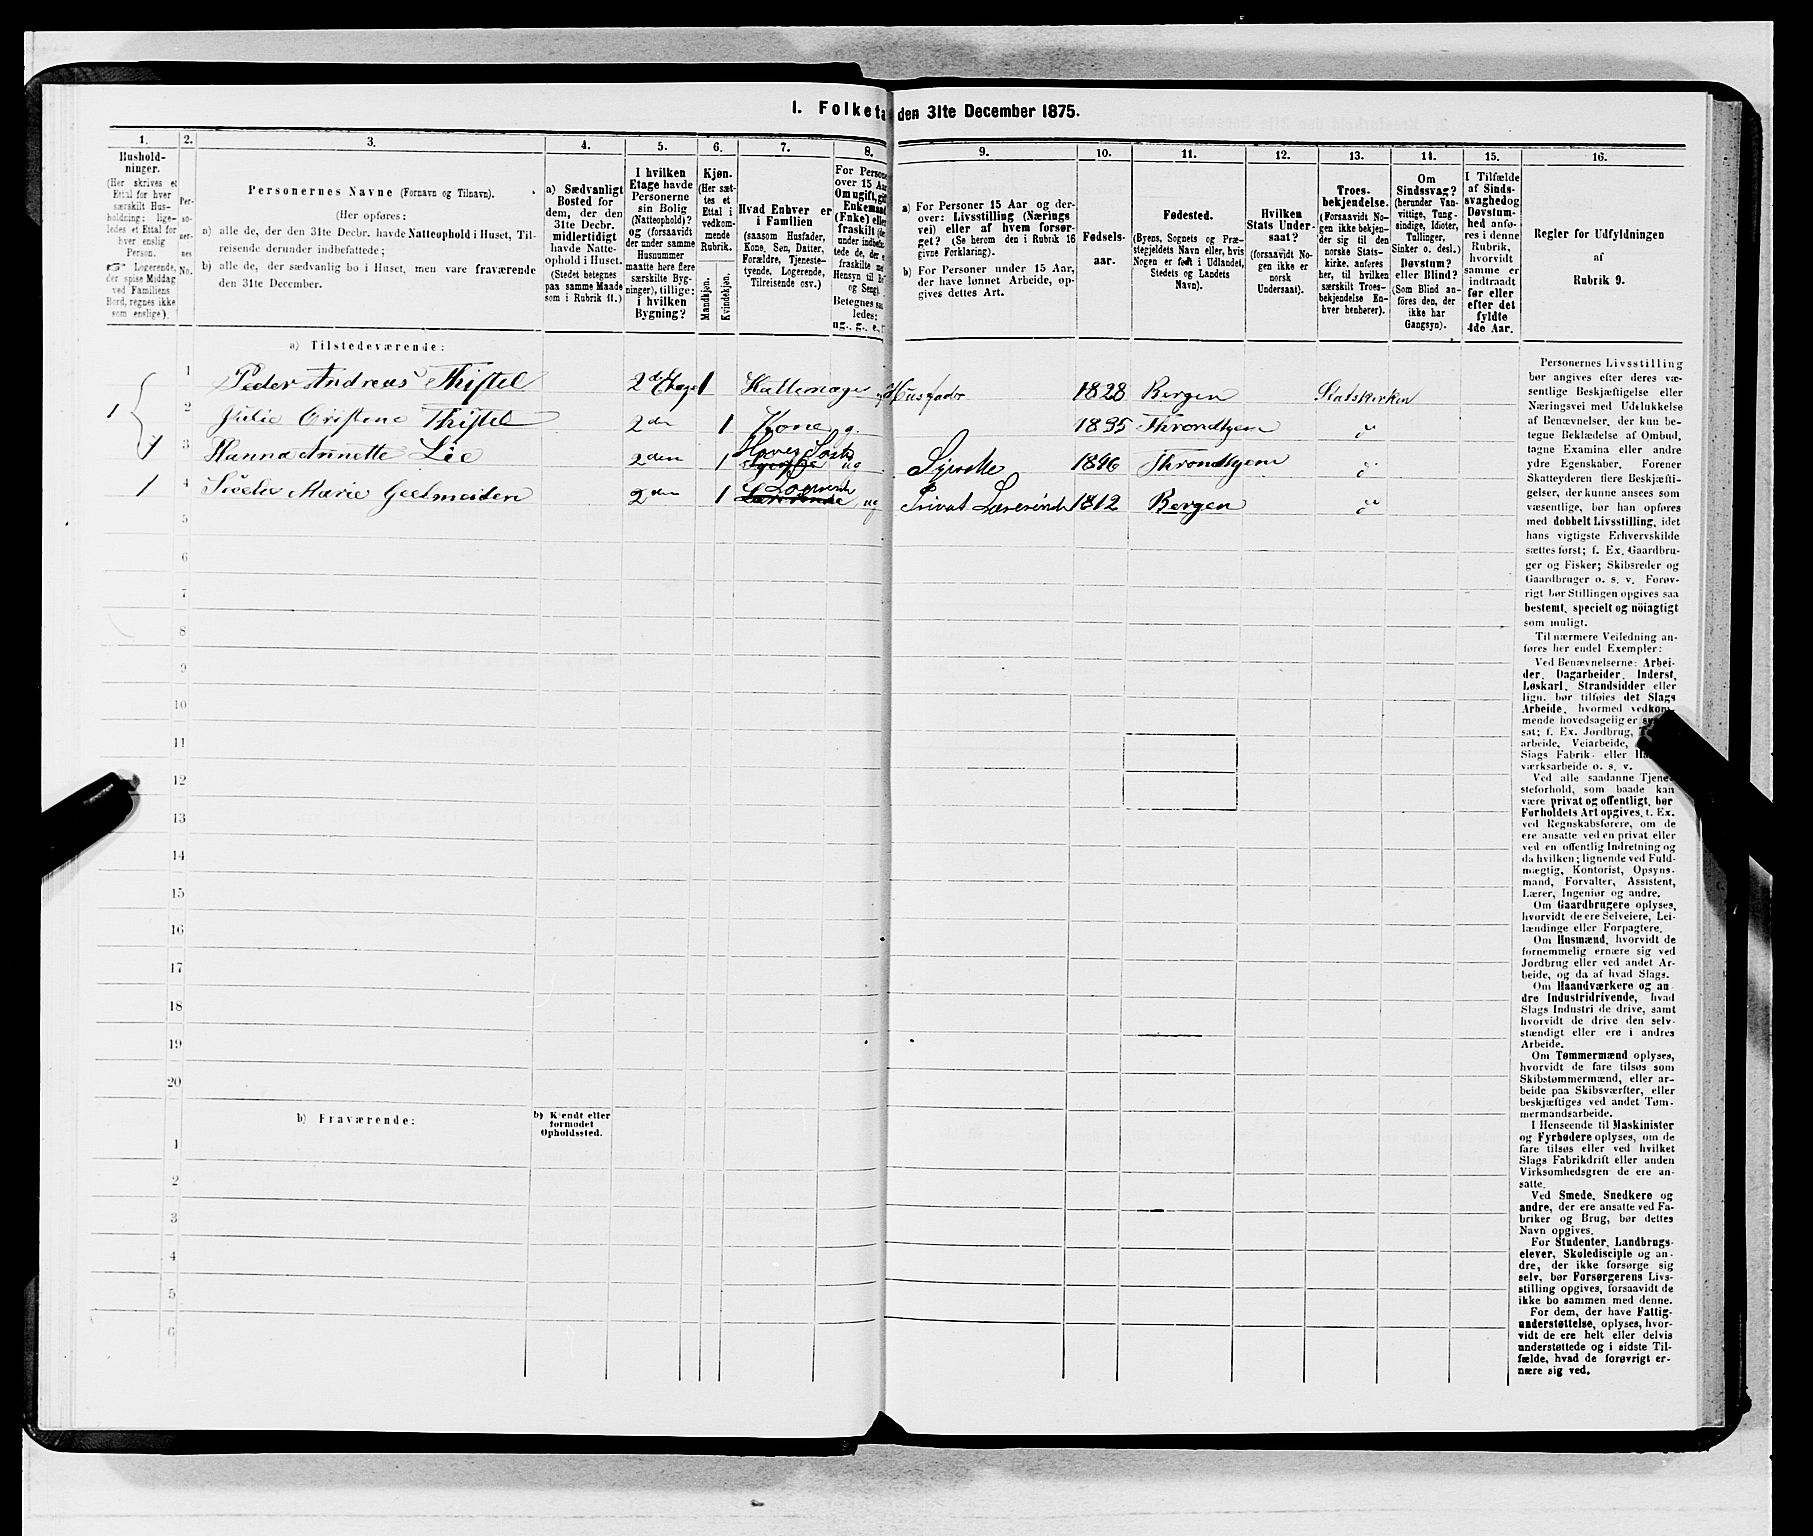 1. Folketa den 31te December 1875.
1. 2. 3. 4. 5. 6. 7. 8. 9. 10. 11. 12. 13. 14. 15. 16.
Hushold-
ninger.
(Her skrives et
Ettal for hver
særskilt Hus-
holdning; lige-
ledes et Ettal for
hver enslig
Person.
Logerende,
der spise Middag
ved Familiens
Bord, regnes ikke
som enslige).
Per-
so-
ner-
nes
No.
Personernes Navne (Fornavn og Tilnavn).
(Her opføres:
a) alle de, der den 31te Decbr. havde Natteophold i Huset, Til-
reisende derunder indbefattede;
b) alle de, der sædvanlig bo i Huset, men vare fraværende
den 31te December.
a) Sædvanligt
Bosted for
dem, der den
31te Decbr.
midlertidigt
havde Natte-
ophold i Huset.
(Stedet betegnes
paa samme Maade
som i Rubrik 11.)
I hvilken
Etage havde
Personerne
sin Bolig
(Natteophold)?
og (forsaavidt
der under samme
Husnummer
maatte høre flere
særskilte Byg-
ninger), tillige:
i hvilken
Bygning?
Kjøn.
(Her sæt-
tes et
Ettal i
vedkom-
mende
Rubrik.
Mandkjøn.
Kvindekjøn.
Hvad Enhver er
i Familien
(saasom Husfader,
Kone, Søn, Datter,
Forældre, Tjeneste-
tyende, Logerende,
Tilreisende osv.)
For Persone
over 15 Aar
Om ugift, gift
Enkemand
(Enke) elle
fraskilt (de
under indbefa
tede de, der e
fraskilte me
Hensyn til Bo
og Seng)
Betegnes saa
ledes:
ug., g., e.,
a) For Personer 15 Aar og der-
over: Livsstilling (Nærings
vei) eller af hvem forsør-
get? (Se herom den i Rubrik 16
givne Forklaring).
b) For Personer under 15 Aar,
der have lønnet Arbeide, op-
gives dettes Art.
Fødsels-
aar.
Fødested.
(Byens, Sognets og Præ-
stegjeldets Navn eller, hvis
Nogen er født i Udlandet,
Stedets og Landets
Navn).
Hvilken
Stats Under-
saat?
(forsaavidt No-
gen ikke er
norsk
Undersaat).
Troes-
bekjendelse.
(Forsaavidt No-
gen ikke bekjen-
der sig til den
norske Stats-
kirke, anføres
her, til hvilken
særskilt Troes-
bekjendelse En-
hver henhører).
Om
Sindssvag?
(herunder Van-
vittige, Tung-
sindige, Idioter,
Tullinger,
Sinker o. desl.)
Døvstum?
eller Blind?
(Som Blind an-
føres den, der
ikke har
Gangsyn).
I Tilfælde
af Sinds-
svaghed og
Døvstum-
hed anfø-
res i denne
Rubrik,
hvorvidt
samme er
indtraadt
før eller
efter det
fyldte
4de Aar.
Regler for Udfyldningen
af
Rubrik 9.
a) Tilstedeværende:
1 Peder Andreas Thiftel 2den Etage 1 Husfader 1828 Bergen Statskirken
1 2 Julie Cristine Thiftel 2den 1 Kone g. 1835 Throndhjem do
1 3 Hanna Annette Lie 2den 1 ug Syerske 1846 Throndhjem do
1 4 Marie Geelmeiden 2den 1 ug Privat Lærerinde 1812 Bergen do
5
6
7
8
9
10
11
12
13
14
15
16
17
18
19
20
b) Fraværende:
b) Kjendt eller
formodet
Opholdssted.
1
2
3
4
5
6
Personernes Livsstilling
bør angives efter deres væ-
sentlige Beskjæftigelse eller
Næringsvei med Udelukkelse
af Benævnelser, der kun be-
tegne Beklædelse af Ombud,
tagne Examina eller andre
ydre Egenskaber. Forener
Skatteyderen flere Beskjæfti-
gelser, der kunne ansees som
væsentlige, bør han opføres
med dobbelt Livsstilling, idet
hans vigtigste Erhvervskilde
sættes først; f. Ex. Gaardbru-
ger og Fisker; Skibsreder og
Gaardbruger o. s. v. Forøv-
rigt bør Stillingen opgives saa
bestemt, specielt og nöiagtigt
som muligt.
Til nærmere Veiledning an-
føres her endel Exempler:
Ved Benævnelserne: Arbei-
der, Dagarbeider, Inderst,
Løskarl, Strandsidder eller
lign. bør tilføies det Slags
Arbeide, hvormed vedkom-
mende hovedsagelig er
sat; f. Ex. Jordbrug,
arbeide, Veiarbeide,
Slags Fabrik- eller
værksarbeide o. s. v.
Ved alle saadanne Tjene-
steforhold, som baade kan
være privat og offentligt, bør
Forholdets Art opgives, f. Ex.
ved Regnskabsførere, om de
ere ansatte ved en privat eller
ved en offentlig Indretning og
da hvilken; lignende ved Fuld-
mægtig, Kontorist, Opsyns-
mand, Forvalter, Assistent,
Lærer, Ingeniør og andre.
Om Gaardbrugere oplyses,
hvorvidt de ere Selveiere, Lei-
lændinge eller Forpagtere.
Om Husmænd, hvorvidt de
fornemmelig ernære sig ved
Jordbrug eller ved andet Ar-
beide, og da af hvad Slags.
Om Haandværkere og an-
dre Industridrivende, hvad
Slags Industri de drive, samt
hvorvidt de drive den selv-
stændigt eller ere i andres
Arbeide.
Om Tømmermænd oplyses,
hvorvidt de fare tilsøs som
Skibstømmermænd, eller ar-
beide paa Skibsværfter, eller
beskjæftiges ved andet Tøm-
mermandsarbeide.
I Henseende til Maskinister
og Fyrbødere oplyses, om de
fare tilsøs eller ved hvilket
Slags Fabrikdrift eller anden
Virksomhedsgren de ere an-
satte.
Ved Smede, Snedkere og
andre, der ere ansatte ved Fa-
briker og Brug, bør dettes
Navn opgives.
For Studenter, Landbrugs-
elever, Skoledisciple og an-
dre, der ikke forsørge sig
selv, bør Forsørgerens Livs-
stilling opgives, forsaavidt de
ikke bo sammen med denne.
For dem, der have Fattig-
understøttelse, oplyses, hvor-
vidt de ere helt eller delvis
understøttede og i sidste Til-
fælde, hvad de forøvrigt er-
nære sig ved.